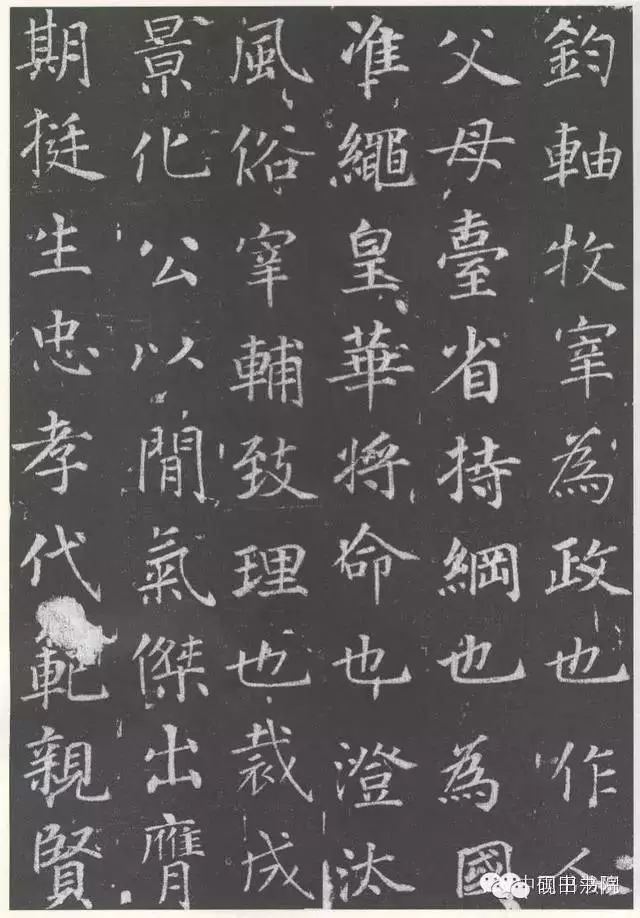 鈞軸牧宰為政也作人
父母臺省持綱也為國
准繩皇華將命也澄汰
風俗宰輔致理也裁成
景化公以間氣傑出膺
期挺生忠孝代範親賢